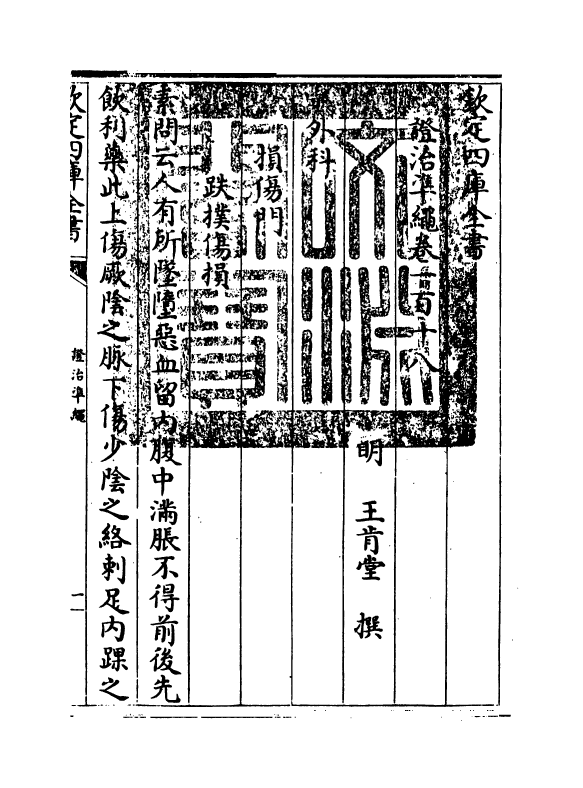 欽定四庫全書
證治凖繩卷一百十八
明 王肯堂 撰
外科
損傷門
跌撲傷損
素問云人有所墜墮惡血留内腹中滿脹不得前後先
飲利藥此上傷厥陰之脉下傷少陰之絡刺足内踝之
欽定四庫全書
證治凖繩